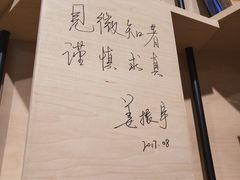 见微知著
谨慎求真
姜振宇
2017.08